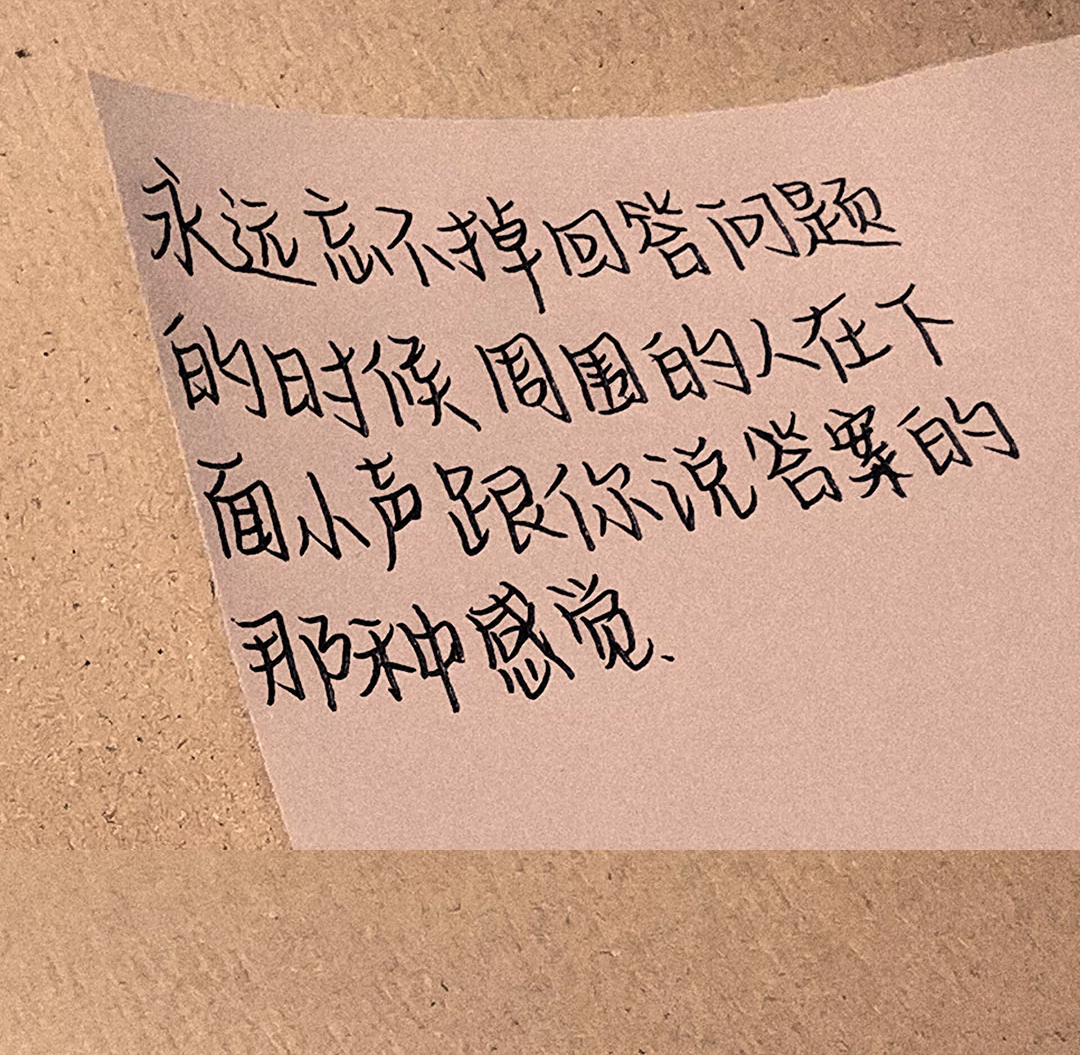 永远忘不掉回答问题
的时候周围的人在下
面小声跟你说答案的
那种感觉.